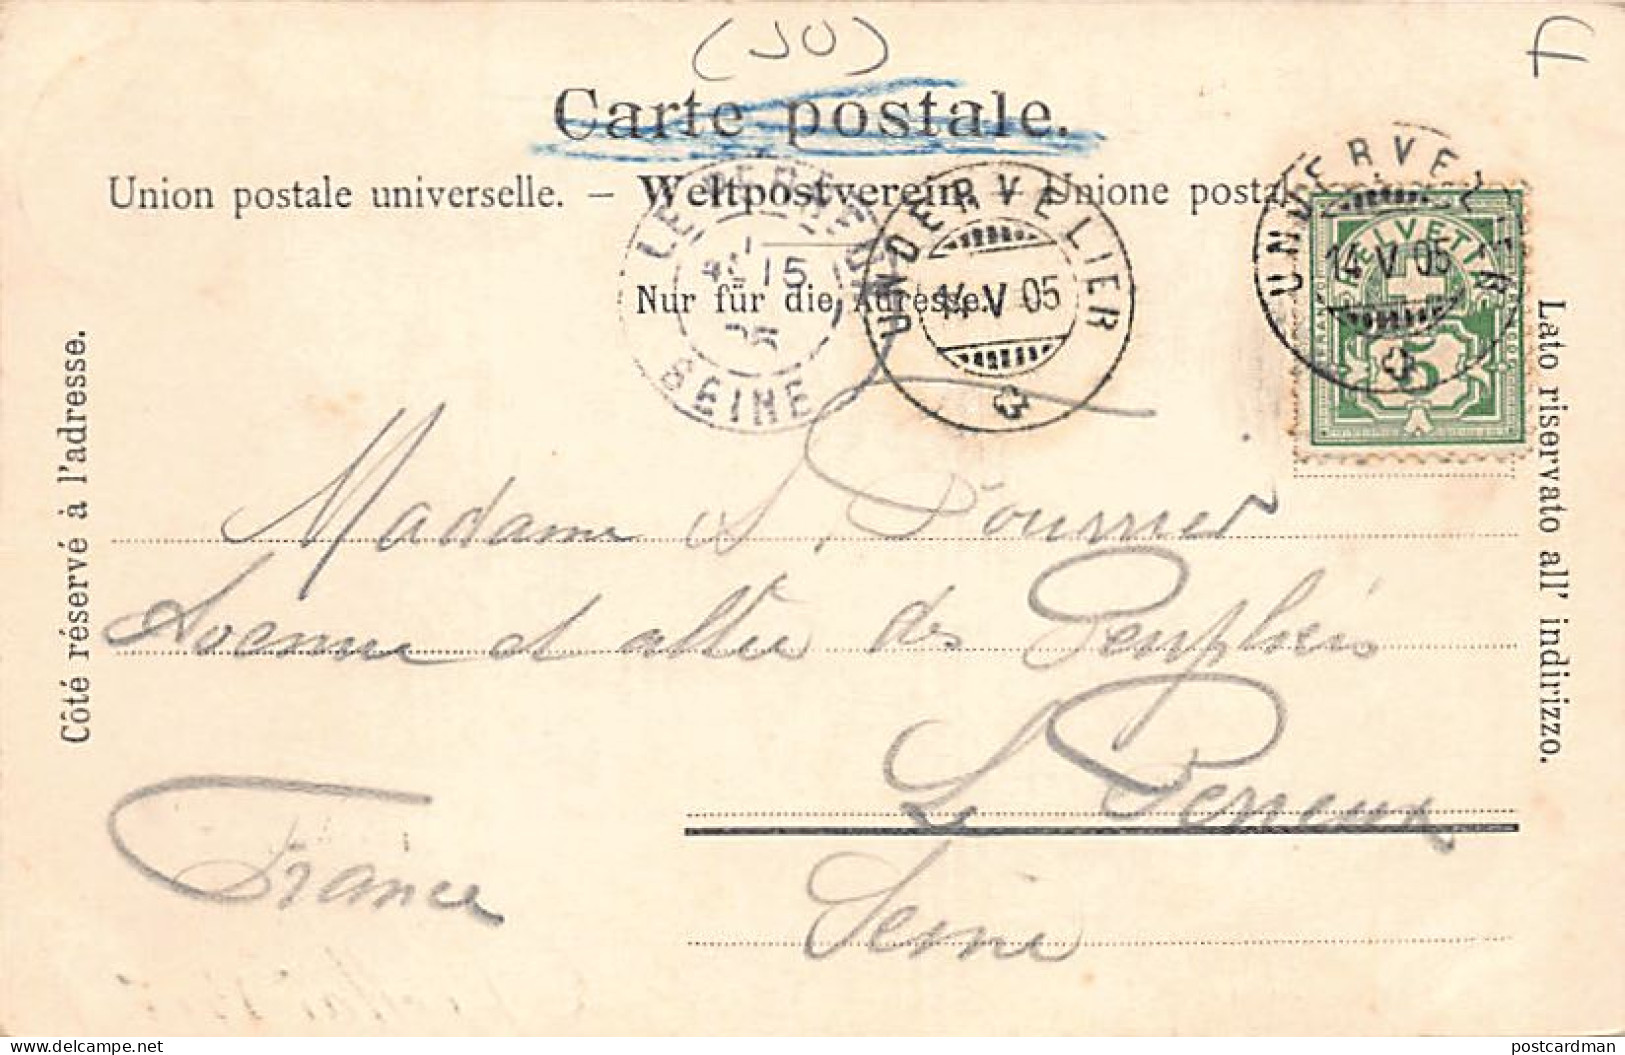 (JU)
Carte postale.
Union postale universelle. – Weltpostverein – Unione postal
Nur für die Adresse.
LE PERREUX
15
05
SEINE
UNDERVELIER
14 V 05
UNDERVELIER
14 V 05
HELVETIA
FRANCO
5
Côté réservé à l'adresse.
Lato riservato all' indirizzo.
Madame Fournier
Avenue et allée des Peupliers
Le Perreux
Seine
France
delcampe.net
postcardman